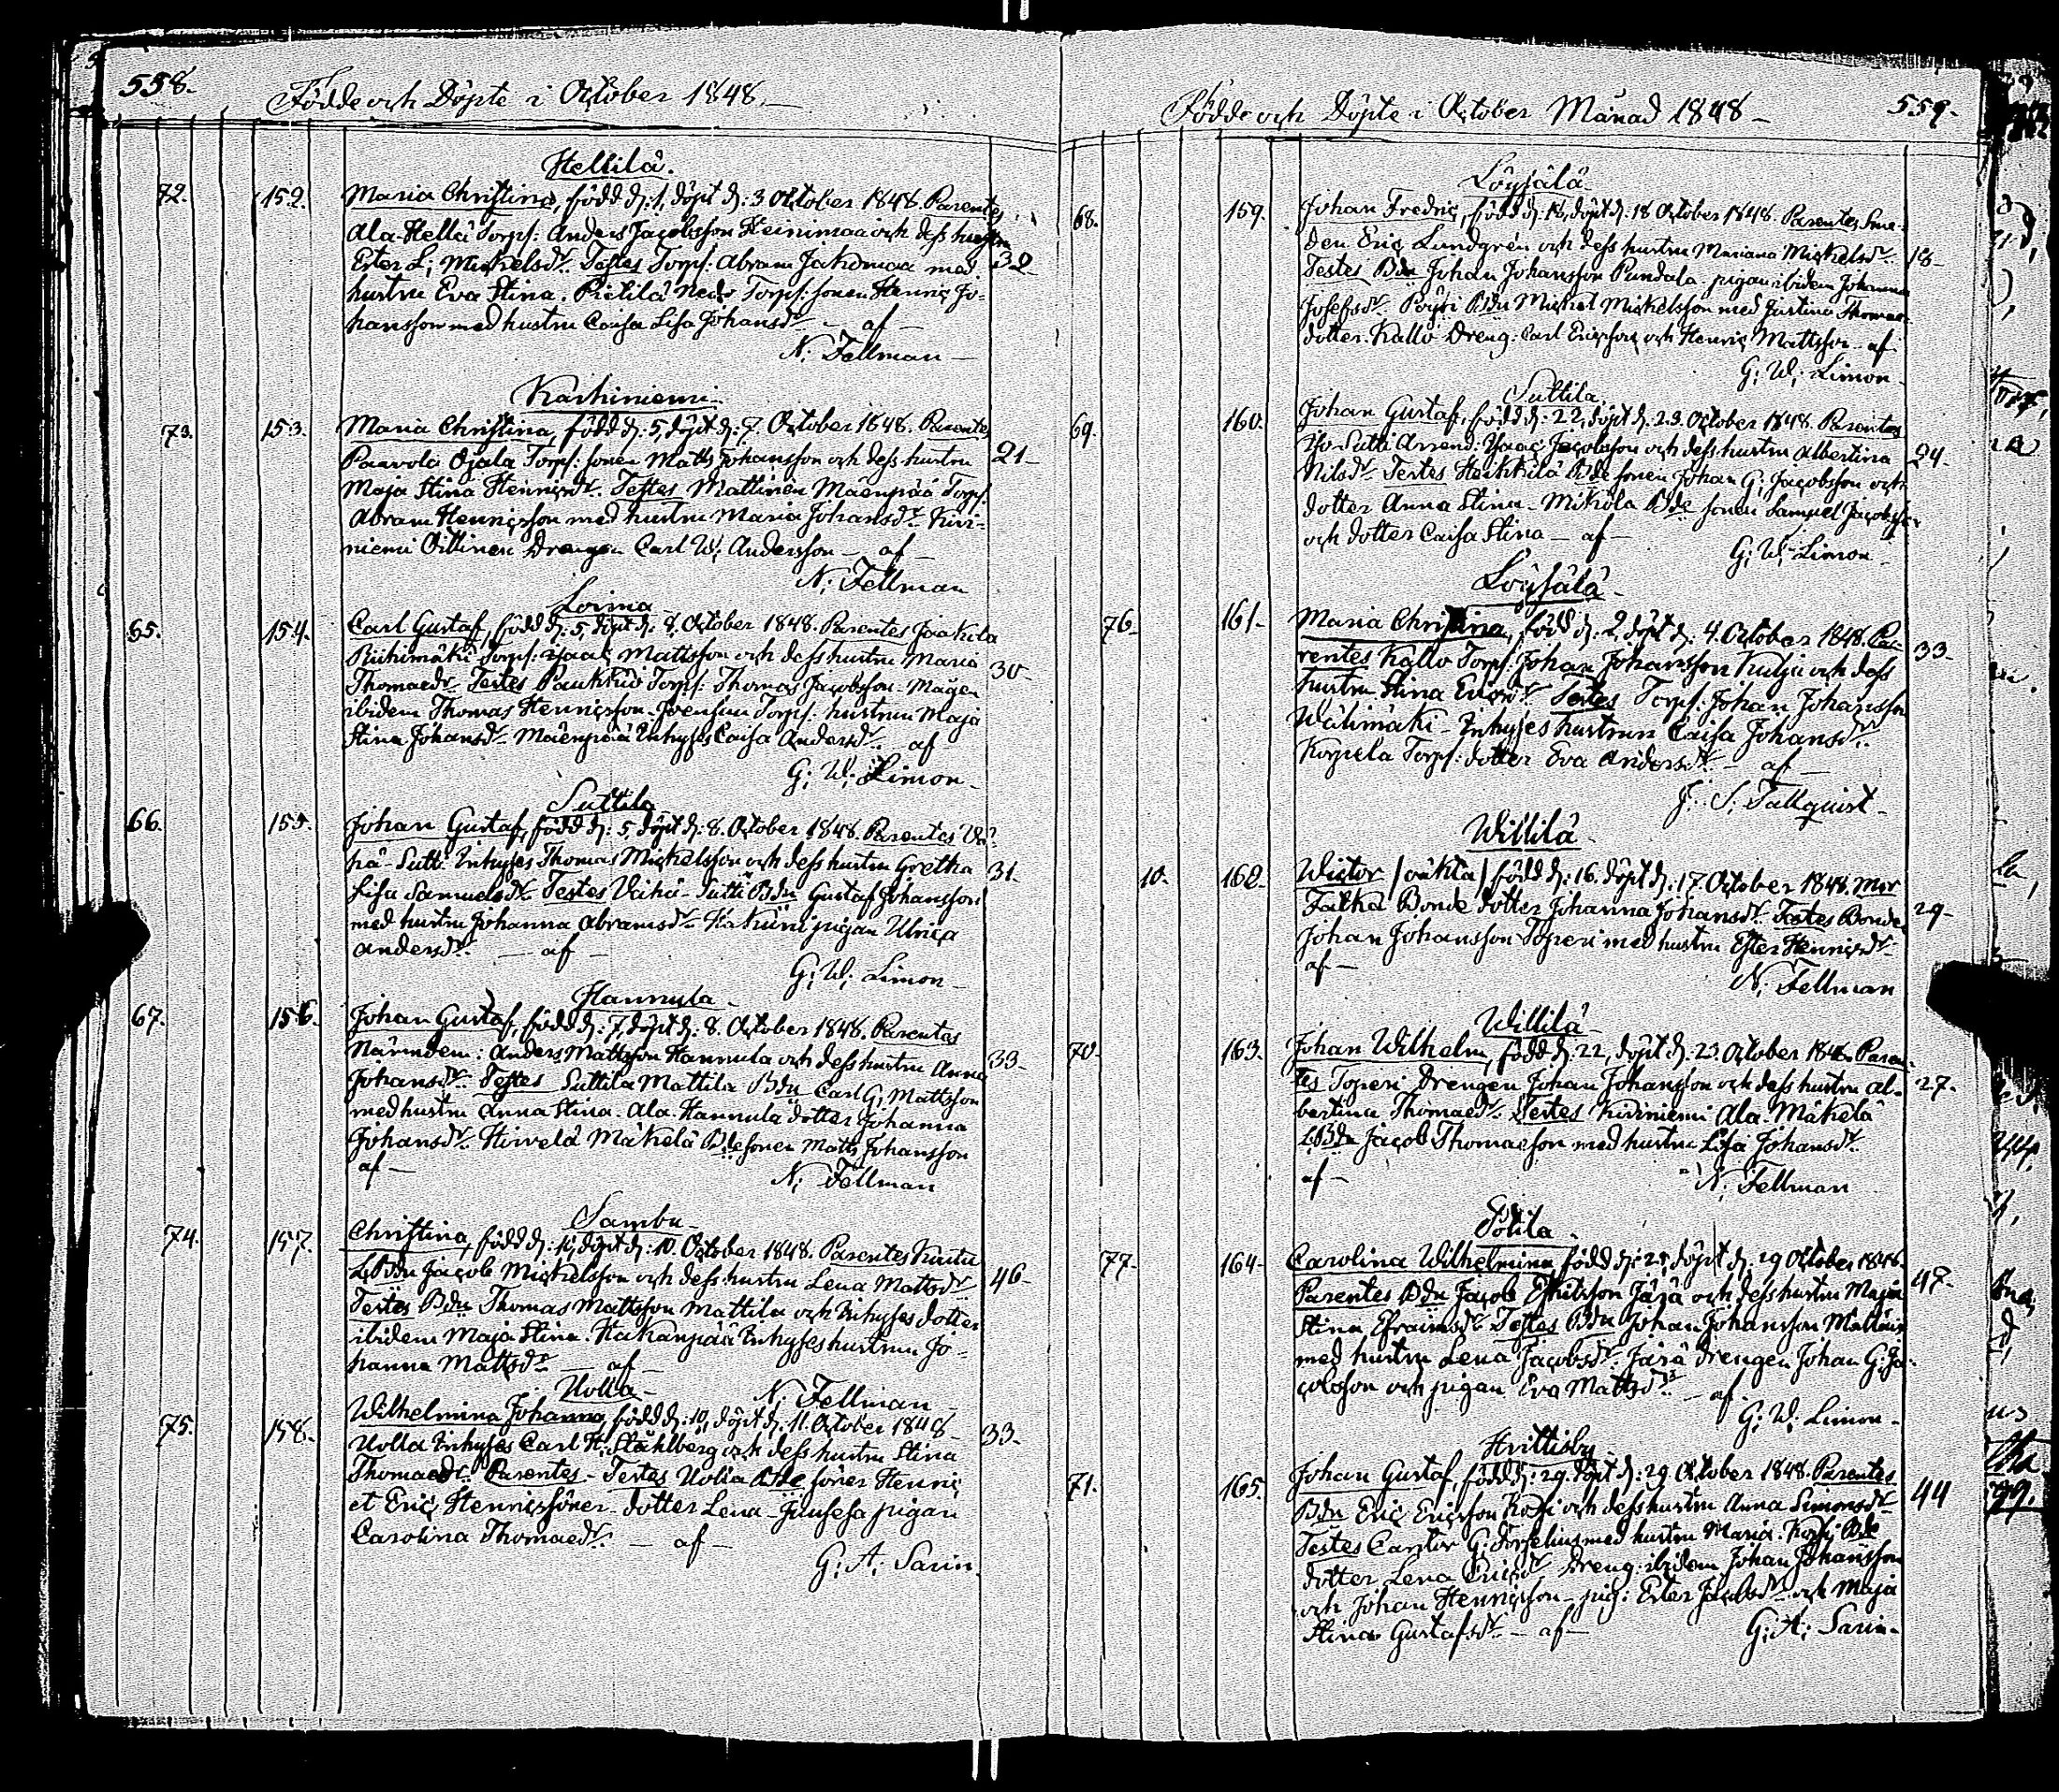 558.
Födde och Döpte i October 1848.
Hellilä.
72. 152. Maria Christina, född d: 1, döpt d: 3 October 1848. Parentes
Ala-Hellä Torp: Anders Jacobsson Heinimaa och dess hustru
Ester L; Mickelsdr. Testes Torp: Abram Jakomaa med 32
hustru Eva Stina. Pietilä Torp: sonen Henric Jo-
hansson med hustru Caisa Lisa Johansdr. — af —
N; Fellman —
Karhiniemi.
73. 153. Maria Christina, född d: 5, döpt d: 7. October 1848. Parentes
Paavola Ojala Torp: sonen Matts Johansson och dess hustru 21
Maja Stina Henricsdr. Testes Mattinen Mäenpää Torp:
Abram Henricsson med hustru Maria Johansdr. Kivi-
niemi Drengen Carl W; Andersson — af —
N; Fellman
Loima
65. 154. Carl Gustaf, född d: 5, döpt d: 8. October 1848. Parentes Jaakola
Riihimäki Torp: Isaac Mattsson och dess hustru Maria 30
Thomaedr. Testes Torp: Thomas Jacobsson. Mågen
ibidem Thomas Henricsson. Torp: hustrun Maja
Stina Johansdr. Mäenpää Inhyses Caisa Andersdr. af —
G; W; Limon
Suttila
66. 155. Johan Gustaf, född d: 5, döpt d: 8. October 1848. Parentes
Sutti Inhyses Thomas Mickelsson och dess hustru Gretha 31.
Lisa Samuelsdr. Testes Vähä-Sutti Bdn Gustaf Johansson
med hustru Johanna Abramsdr. pigan Ulrica
Andersdr. — af —
G; W; Limon
Hannula
67. 156. Johan Gustaf, född d: 7, döpt d: 8. October 1848. Parentes
Nämndem: Anders Mattsson Hannula och dess hustru Anna 33
Johansdr. Testes Suttila Mattila Bdn Carl G; Mattsson
med hustru Anna Stina. Ala-Hannula dotter Johanna
Johansdr. Hirvelä Mäkelä Bdesonen Matts Johansson
af —
N; Fellman
Sambu
74. 157. Christina, född d: döpt d: 10. October 1848. Parentes
LBdn Jacob Mickelsson och dess hustru Lena Mattsdr. 46
Testes Bdn Thomas Mattsson Mattila och Inhyses dotter
ibidem Maja Stina. Hakanpää Inhyseshustrun Jo-
hanna Mattsdr. — af —
N; Fellman
Uolla
75. 158. Wilhelmina Johanna, född d: 10, döpt d: 11. October 1848 — 33
Uolla Inhyses Carl H; Ståhlberg och dess hustru Stina
Thomaedr. Parentes — Testes Uolla Bde söner Henric
et Eric Henricssöner dotter Lena — pigan
Carolina Thomaedr. — af —
G; A; Sarin.
559.
Födde och Döpte i October Månad 1848 —
Löysälä
68. 159. Johan Fredric, född d: 18, döpt d: 18 October 1848. Parentes Sme-
den Eric Lundgrén och dess hustru Mariana Mickelsdr. 18
Testes Bdn Johan Johansson Pundala. pigan ibidem Johanna
Josefsdr. Bdn Mickel Mickelsson med Justina Thomae
dotter. Kallo Dreng: Carl Ericsson och Henric Mattsson — af
G; W; Limon
Suttila.
69. 160. Johan Gustaf, född d: 22, döpt d: 23. October 1848. Parentes
Yso-Sutti Arrend: Isaac Jacobsson och dess hustru Albertina 24.
Nilsdr. Testes Heikkilä Bde sonen Johan G; Jacobsson och
dotter Anna Stina. Mikola Bde sonen Samuel Jacobsson
och dotter Caisa Stina — af —
G; W; Limon
Löysälä
76 161. Maria Christina, född d: 2, döpt d: 4. October 1848. Pa-
rentes Kallo Torp: Johan Johansson Kulju och dess 33
hustru Stina Ericsdr. Testes Torp: Johan Johansson
Wälimäki. Inhyses hustrun Caisa Johansdr.
Korpela Torp: dotter Eva Andersdr. — af —
J. S; Tallquist
Willilä
10. 162. Wictor (oäkta) född d: 16. döpt d: 17. October 1848. Mor
Bonde dotter Johanna Johansdr. Testes Bonde 29
Johan Johansson Toperi med hustru Ester Henricsdr.
af —
N; Fellman
Willilä
70. 163. Johan Wilhelm, född d: 22, döpt d: 23. October 1848. Paren-
tes Toperi Drengen Johan Johansson och dess hustru Al- 27.
bertina Thomaedr. Testes Kiviniemi Ala-Mäkelä
LBdn Jacob Thomaesson med hustru Lisa Johansdr.
af —
N; Fellman
Potila.
77. 164 Carolina Wilhelmina född d: 28, döpt d. 29 October 1848.
Parentes Bdn Jacob Järä och dess hustru Maja 47.
Stina Efraimsdr. Testes Bdn Johan Johansson
med hustru Lena Jacobsdr. Järä drengen Johan G: Ja-
cobsson och pigan Eva Mattsdr. — af
G; W; Limon.
Hvittisby
71. 165. Johan Gustaf, född d: 29, döpt d: 29. October 1848. Parentes 44
Bdn Eric Ericsson och dess hustru Anna Simonsdr.
Testes Cantor G; med hustru Maria. Bde
dotter Lena Ericsdr. Dreng: ibidem Johan Johansson
och Johan Henricsson — pig: Ester Jacobsdr. och Maja
Stina Gustafsdr. — af —
G; A; Sarin.